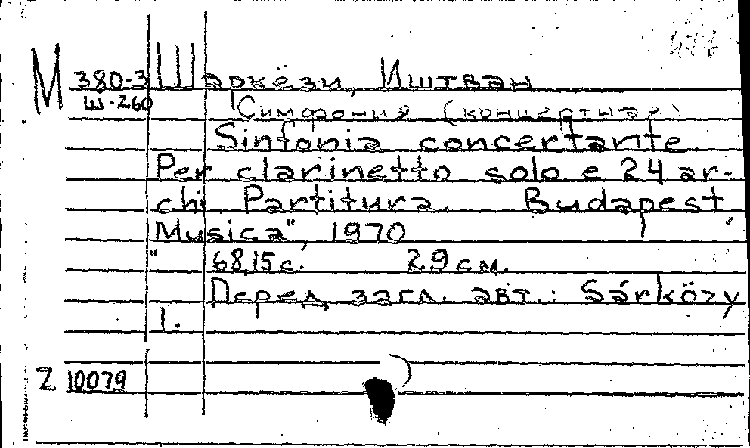 М 380-3 Шаркёзи, Иштван
Ш-260 (Симфония (концертная)
Sinfonia concertante
Per clarinetto solo e 24 ar-
chi Partitura. Budapest,
"Musica", 1970
68,15 с. 29 см.
Перед загл. авт.: Sárközy
I.
Z 10079